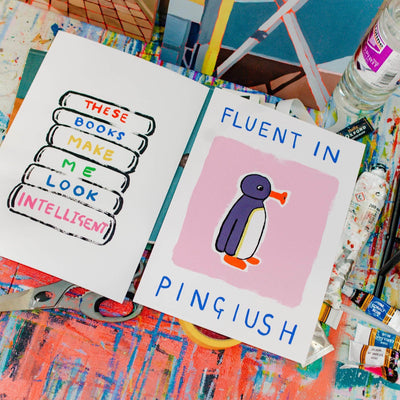 THESE
BOOKS
MAKE
ME
LOOK
INTELLIGENT
FLUENT IN
PINGIUSH